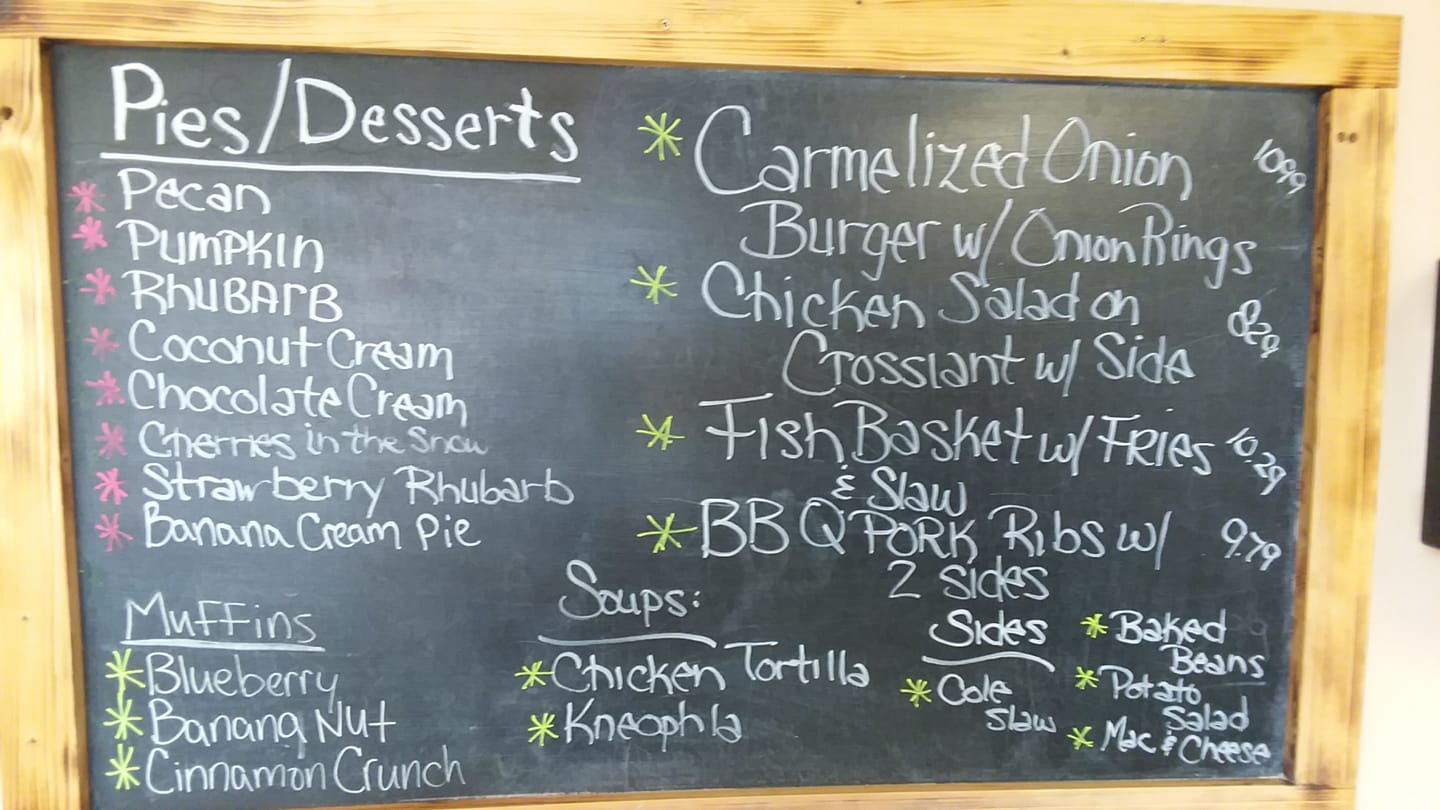 Pies/Desserts
* Pecan
* Pumpkin
* Rhubarb
* Coconut Cream
* Chocolate Cream
* Cherries in the Snow
* Strawberry Rhubarb
* Banana Cream Pie
Muffins
* Blueberry
* Banana Nut
* Cinnamon Crunch
* Carmelized Onion 10.99
Burger w/ Onion Rings
* Chicken Salad on 8.29
Crossiant w/ Side
* Fish Basket w/ Fries 10.29
& Slaw
* BBQ Pork Ribs w/ 9.79
2 sides
Soups:
* Chicken Tortilla
* Kneophla
Sides
* Cole
Slaw
* Baked
Beans
* Potato
Salad
* Mac & Cheese